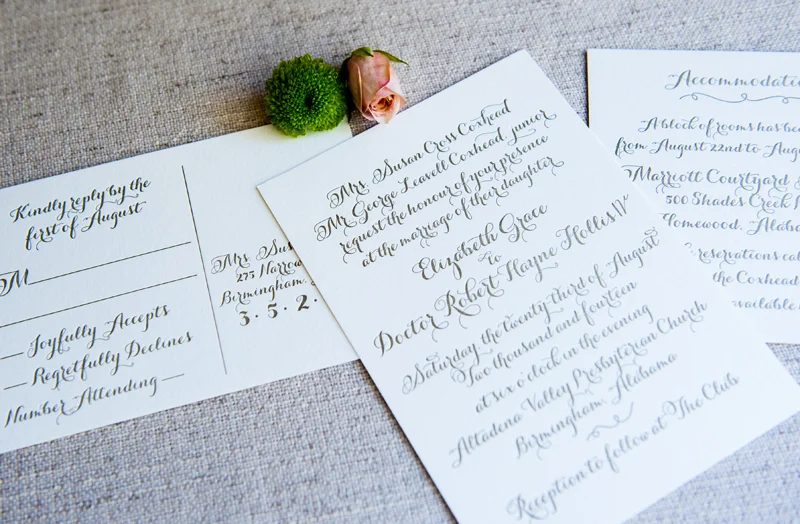 Kindly reply by the
first of August
M
Joyfully Accepts
Regretfully Declines
Number Attending
Mrs. Sus
275 Harrow
Birmingham,
3·5·2·
Mrs. Susan Cross Coxhead
Mr George Leavell Coxhead, junior
request the honour of your presence
at the marriage of their daughter
Elizabeth Grace
to
Doctor Robert Hayne Hollis IV
Saturday the twenty-third of August
Two thousand and fourteen
at sex o'clock in the evening
Altadena Valley Presbyterian Church
Birmingham, Alabama
Reception to follow at The Club
Accommodatio
A block of rooms has bee
from August 22nd to Augu
Marcott Courtyard
500 Shades Creek
Homewood, Alaba
reservations cal
the Coxhead
available